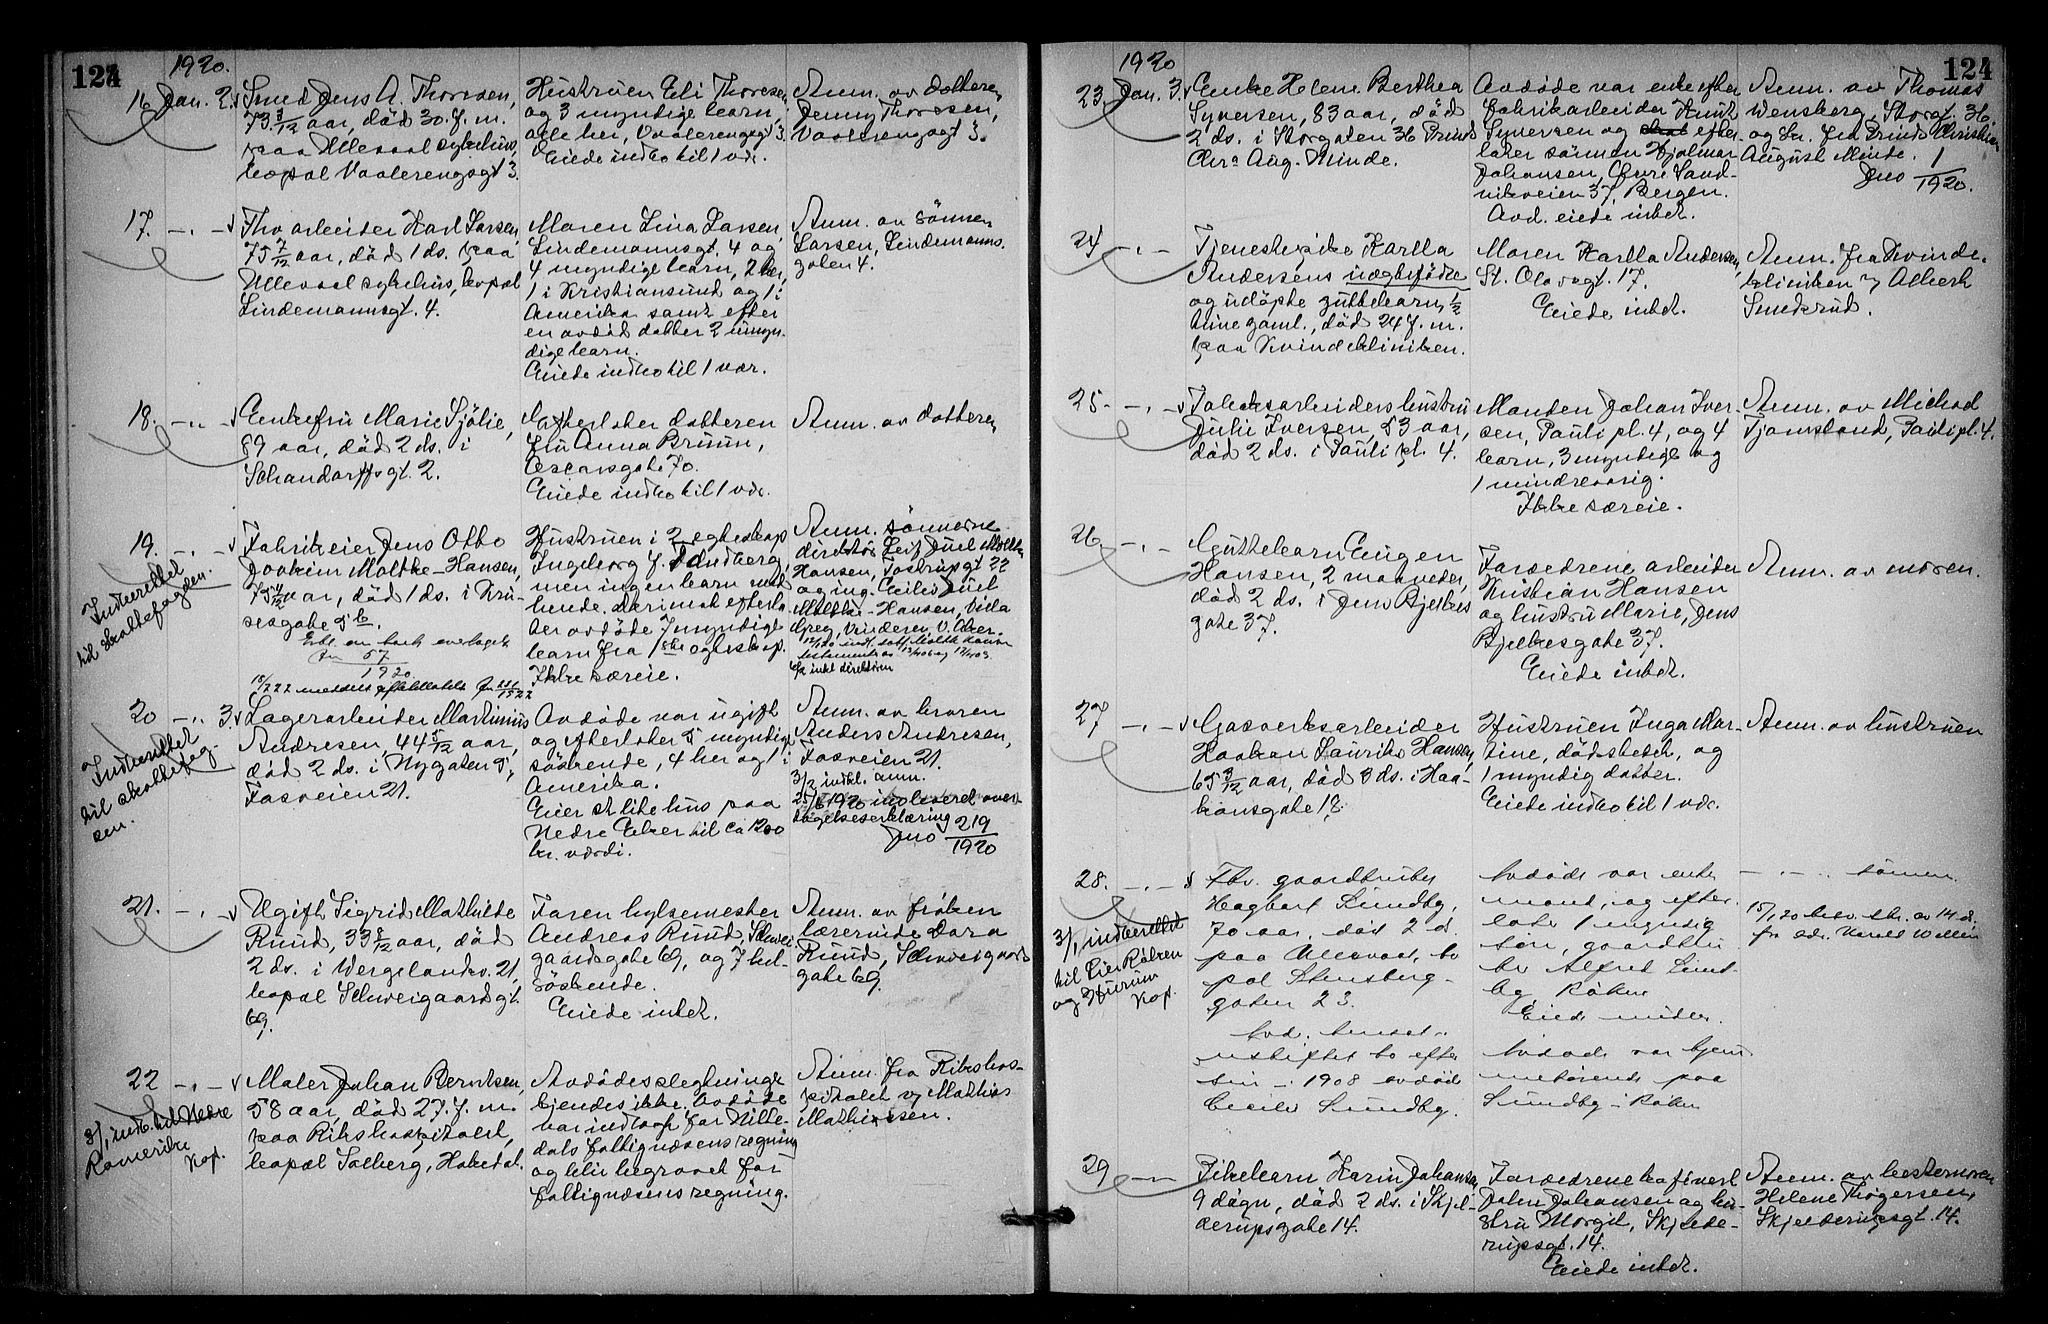 124
1920.
16 Jan. 2. Smed Jens A. Thoresen,
73 3/12 aar, död 30. f. m.
paa Ullevaal sykehus,
bopæl Vaalerengsgt 3.
Hustruen Eli Thoresen
og 3 myndige barn,
alle her, Vaalerengsgt 3.
Eiede indbo til 1 vdr.
Anm. av datteren
Jenny Thoresen,
Vaalerengsgt 3.
17. -.- Fhv arbeider Karl Larsen,
75 7/12 aar, död 1 ds. paa
Ullevaal sykehus, bopæl
Lindemannsgt. 4.
Maren Lina Larsen,
Lindemannsgt. 4 og
4 myndige barn, 2 her,
1 i Kristiansund og 1 i
Amerika samt efter
en avdöd datter 2 umyn-
dige barn.
Eiede indbo til 1 vær.
Anm. av sönnen
Larsen, Lindemanns-
gaten 4.
18. -.- Enkefru Marie Sjölie,
89 aar, död 2 ds. i
Schandorffsgt. 2.
Efterlater datteren
fru Anna Bruun,
Oscarsgate 70.
Eiede indbo til 1 vdr.
Anm. av datteren
19. -.- Fabrikeier Jens Otto
Joakim Moltke-Hansen,
aar, död 1 ds. i Kru-
sesgate 5 b.
57
1920
Indberettet
til skattefogden.
Hustruen i 2 egteskap
Ingeborg f. Sundberg,
men ingen barn med
hende. Derimot efterla-
ter avdöde 7 myndige
barn fra 1ste egteskap.
Ikke særeie.
Anm. sönnerne
direktör Leif Juel Moltke
Hansen, Tostrupgt 22
og ing. Eilif Juel
Moltke-Hansen, Villa
Vinderen, V. Aker.
20 -.- 3. Lagerarbeider Martinius
Andresen, 44 5/12 aar,
död 2 ds. i Nygaten 5,
Fasveien 21.
Indberettet
til skattefog-
den.
Avdöde var ugift
og efterlater 5 myndige
söskende, 4 her og 1 i
Amerika.
Eier et lite hus paa
Nedre Eker til ca 1200
kr. værdi.
Anm. av broren
Anders Andresen,
Fasveien 21.
3/2 indkl. anm.
25/6 1920 innleveret over-
tagelseserklæring
Jno 219
1920
21. -.- Ugift Sigrid Mathilde
Ruud, 33 8/12 aar, död
2 ds. i Wergelandsv. 21,
bopæl Schweigaardsgt.
69.
Faren hylsemester
Andreas Ruud, Schwei-
gaardsgate 69, og 7 hel-
söskende.
Eiede intet.
Anm. av fröken
lærerinde Dora
Ruud, Schweigaards
gate 69.
22 -.- Maler Johan Berntsen,
58 aar, död 27. f. m.
paa Rikshospitalet,
bopæl Solberg, Hakedal.
3/1 indb. til Nedre
Romerike
Kop.
Avdödes slegtninge
kjendes ikke. Avdöde
var indlagt for Nitte-
dals fattigvæsens regning
og blir begravet for
fattigvæsens regning.
Anm. fra Rikshos-
pitalet v/ Mathias
Mathiesen.
124
1920
23. Jan. 3. Enke Helene Berthea
Syversen, 83 aar, död
2 ds. i Storgaten 36 Prins
Chr. Aug. Minde.
Avdöde var enke efter
fabrikarbeider Knut
Syversen og efter-
later sönnen Hjalmar
Johansen, Övre Sand-
viksveien 37, Bergen.
Avd. eiede intet.
Anm. av Thomas
Wensberg, Storgt. 36.
og br. fra Prinds Christian
August Minde.
Jno 1
1920.
24 -.- Tjenestepike Karlla
Andersens uegtefödte
og udöpte guttebarn, 1/2
time gaml., död 24 f. m.
paa Kvindekliniken.
Moren Karlla Andersen,
St. Olavsgt. 17.
Eiede intet.
Anm. fra Kvinde-
kliniken v/ Albert
Smedsrud.
25. -.- Tobaksarbeiders hustru
Julie Iversen, 53 aar,
död 2 ds. i Pauli pl. 4.
Manden Johan Iver-
sen, Pauli pl. 4, og 4
barn, 3 myndige og
1 mindreaarig.
Ikke særeie.
Anm. av Michael
Tjomsland, Paulipl. 4.
26 -.- Guttebarn Eugen
Hansen, 2 maaneder,
död 2 ds. i Jens Bjelkes
gate 37.
Forældrene arbeider
Kristian Hansen
og hustru Marie, Jens
Bjelkesgate 37.
Eiede intet.
Anm. av moren.
27 -.- Gasverksarbeider
Haakon Laurits Hansen,
65 3/12 aar, död 3 ds. i Haa-
konsgate 18
Hustruen Inga Mar-
tine, dödsbeth, og
1 myndig datter.
Eiede indbo til 1 vdr.
Anm. av hustruen
28. -.- Fhv. gaardbruker
Hagbart Lundby,
70 aar, död 2 ds
paa Ullevaal, bo
pæl Stensberg-
gaten 23.
Avd. hensat i
uskiftet bo efter
sin i 1908 avdöde
Cecilie Lundby.
3/1 indberettet
til Eier Röken
og Hurum
Kop.
Avdöde var enke
mand, og efter-
later 1 myndig
sön, gaardbru
ker Alfred Lund-
by, Röken
Eiede midler.
Avdöde var hjem
mehörende paa
Lundby i Röken
-.- sönnen
29 -.- Pikebarn Karin Johansen,
9 dögn, död 2 ds. i Skjel-
derupsgate 14.
Forældrene
John Johansen og hu-
stru Margit, Skjelde-
rupsgt. 14.
Eiede intet.
Anm. av bestemoren
Helene Thögersen,
Skjelderupsgt. 14.